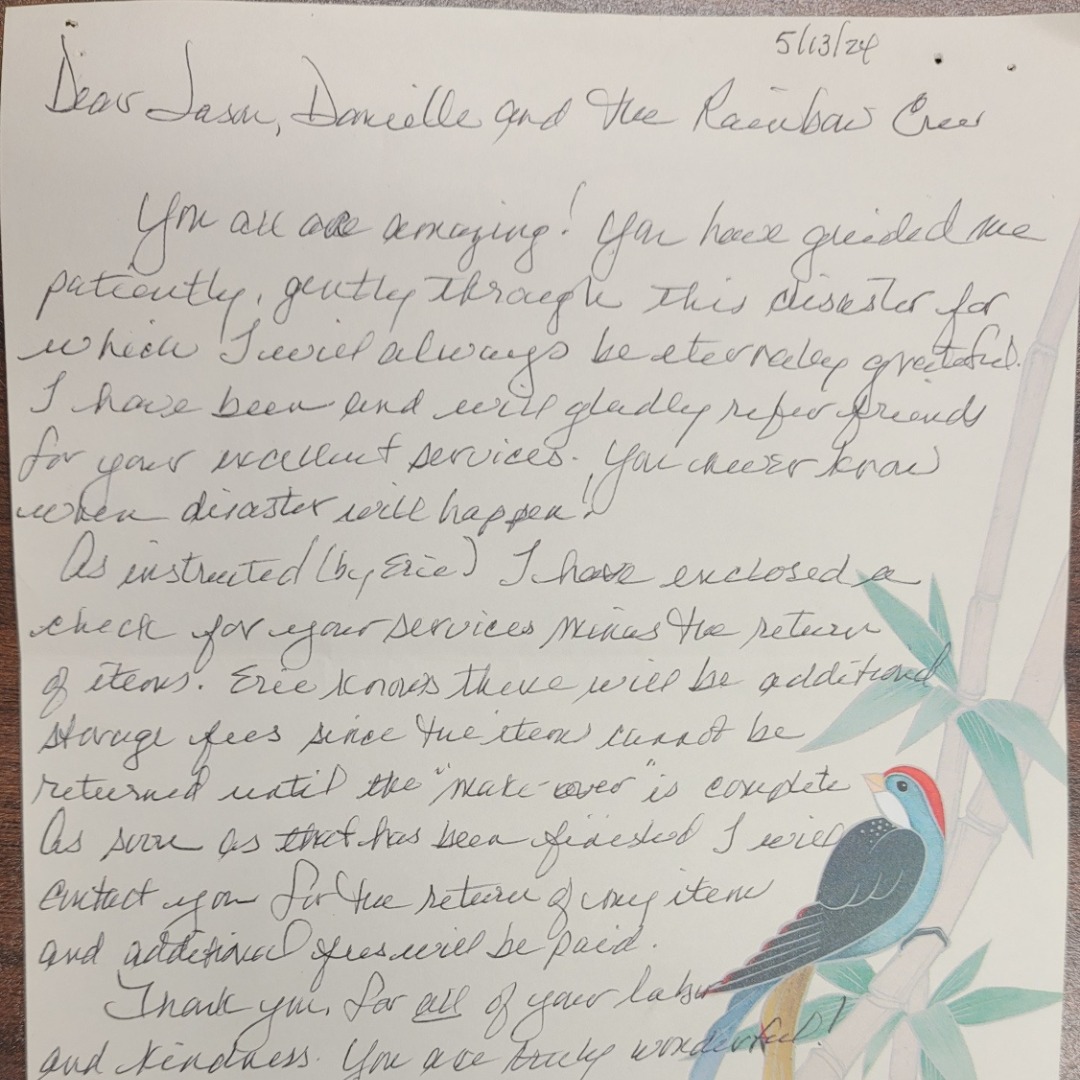 5/13/24
Dear Jason, Danielle and the Rainbow Crew
You all are amazing! You have guided me
patiently, gently through this disaster for
which I will always be eternaly grateful.
I have been and will gladly refer friends
for your excellent services. You never know
when disaster will happen!
As instructed (by Eric) I have enclosed a
check for your services minus the return
of items. Eric knows there will be additional
storage fees since the items cannot be
returned until the "make-over" is complete
As soon as that has been finished I will
contact you for the return of my items
and additional fees will be paid.
Thank you, for all of your labor
and kindness. You are truly wonderful!